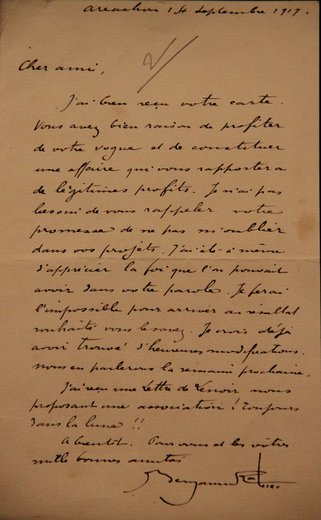 Arcachon 14 Septembre 1919.
Cher ami,
J'ai bien reçu votre carte.
Vous avez bien raison de profiter
de votre vogue et de constituer
une affaire qui vous rapportera
de légitimes profits. Je n'ai pas
besoin de vous rappeler votre
promesse de ne pas m'oublier
dans vos projets. J'ai été à même
d'apprécier la foi que l'on pouvait
avoir dans votre parole. Je ferai
l'impossible pour arriver au résultat
souhaité vous le savez. Je crois déjà
avoir trouvé d'heureuses modifications.
nous en parlerons la semaine prochaine.
J'ai reçu une lettre de Lenoir nous
proposant une association ! Toujours
dans la lune !!
A bientôt. Pour vous et les vôtres
mille bonnes amitiés
Benjamin Rabier